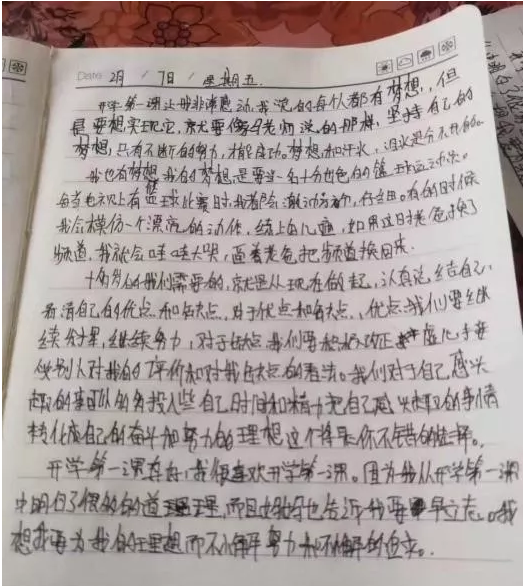 Date 2月 / 7日 / 星期五
开学第一课让我非常感动,我觉的每个人都有梦想,但
是要想实现它,就要像马老师说的那样,坚持自己的
梦想,只有不断的努力,才能成功。梦想和汗水,泪水是分不开的。
我也有梦想我的梦想是要当一名十分出色的篮球运动员。
每当电视上有篮球比赛时我都会激动万分,仔细。有的时候
我会模仿一个漂亮的动作,练上自几遍,如果这时老爸换了
频道,我就会哇哇大哭,逼着老爸把频道换回来。
十岁的我们需要的,就是从现在做起,认真总结自己,
看清自己的优点和缺点,对于优点和缺点,优点我们要继
续发扬,继续努力,对于缺点我们要积极改正 虚心接
受别人对我的评价和对我缺点的看法。我们对于自己感兴
趣的事可以多投入些自己时间和精力把自己感兴趣的事情
转化成自己的奋斗和努力的理想这个将是你不错的选择。
开学第一课真好,我很喜欢开学第一课。因为我从开学第一课
中明白了很多的道理,而且也告诉我要早立志。我
想我要为我的理想而不懈努力和不懈的追求。